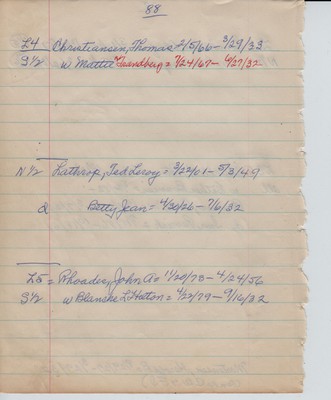 88
L4 Christiansen, Thomas 2/5/66 - 3/29/33
S 1/2 w Mattie = 7/24/67 - 4/27/32
N 1/2 Lathrop, Ted Leroy = 3/22/01 - 5/3/49
d Betty Jean = 4/30/26 - 7/6/32
L5 = Rhoades, John A = 11/20/78 - 4/24/56
S 1/2 w Blanche L Hatton = 4/22/79 - 9/16/32